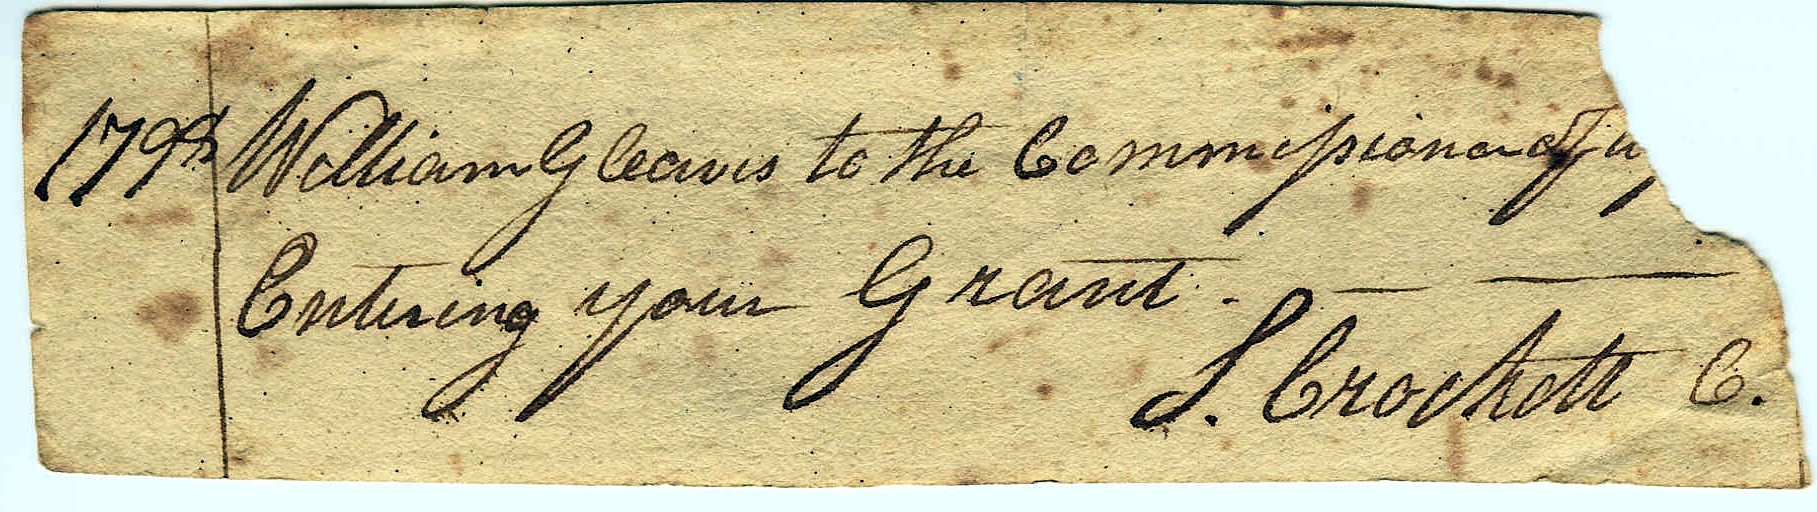 1798 William Gleaves to the Commissioner of
Entering your Grant. — —
S. Crockett C.